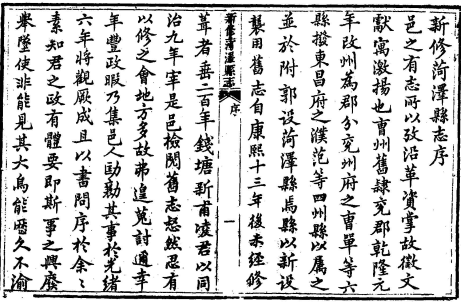 新修菏澤縣志序
邑之有志所以攷沿革資掌故徵文
獻寓激揚也曹州舊隸兖郡乾隆元
年改州為郡分兖州府之曹單等六
縣撥東昌府之濮范等四州縣以屬之
並於附郭設菏澤縣焉縣以新設
襲用舊志自康熙十三年後未經修
新修菏澤縣志
序
一
葺者垂二百年錢塘新甫凌君以同
治九年宰是邑檢閱舊志惄然忍有
以修之會地方多故弗遑蒐討通幸
年豐政暇乃集邑人勷其事於光緒
六年將觀厥成且以書問序於余余
素知君之政有體要即斯事之興廢
舉墜使非能見其大烏能歷久不渝